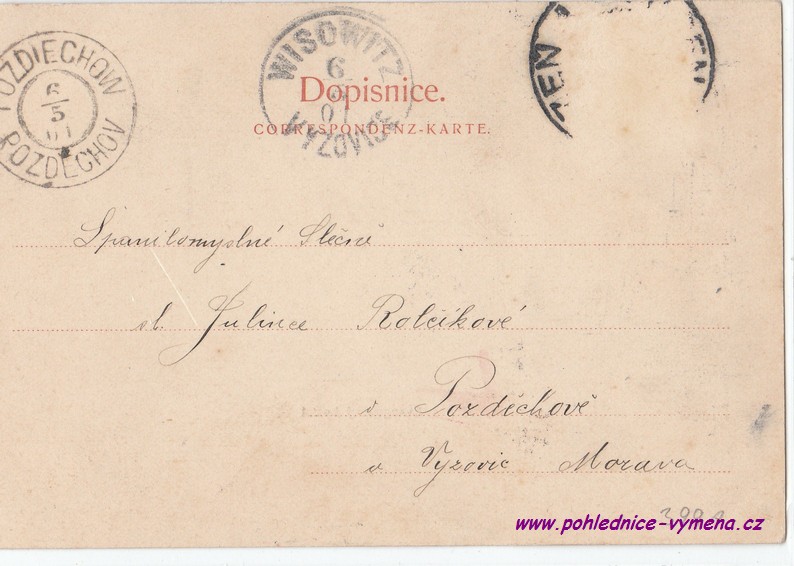 POZDIECHOW
6
5
01
POZDECHOV
WISOWITZ
6
01
VYZOVICE
Dopisnice.
CORRESPONDENZ-KARTE.
Spanilomyslné Slečně
sl. Julince Rolčíkové
v Pozděchově
u Vyzovic Morava
www.pohlednice-vymena.cz